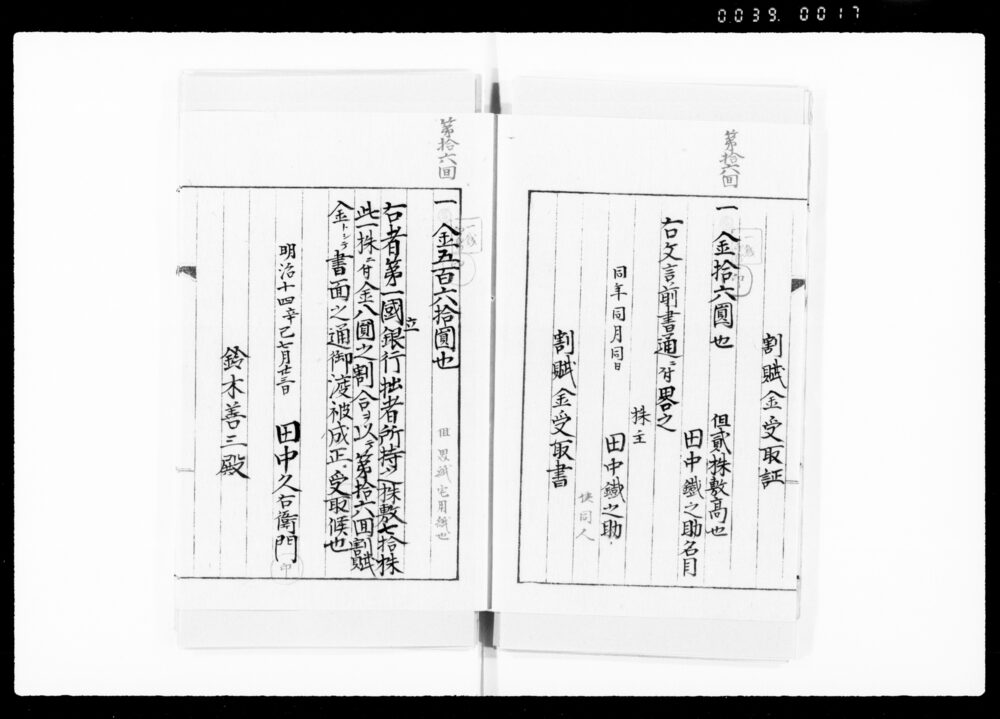 0039.0017
第拾六回
割賦金受取証
一金拾六圓也
但貳株敷高也
田中鐵之助名目
右文言前書通ニ付畧之
株主
同年同月同日
田中鐵之助
使同人
割賦金受取書
第拾六回
一金五百六拾圓也
右者第一國立銀行拙者所持之株敷七拾株
此一株ニ付金八圓之割合ヲ以テ第拾六回割賦
金トシテ書面之通御渡被成正ニ受取候也
明治十四辛巳七月廿三日
田中久右衛門
印
鈴木善三殿